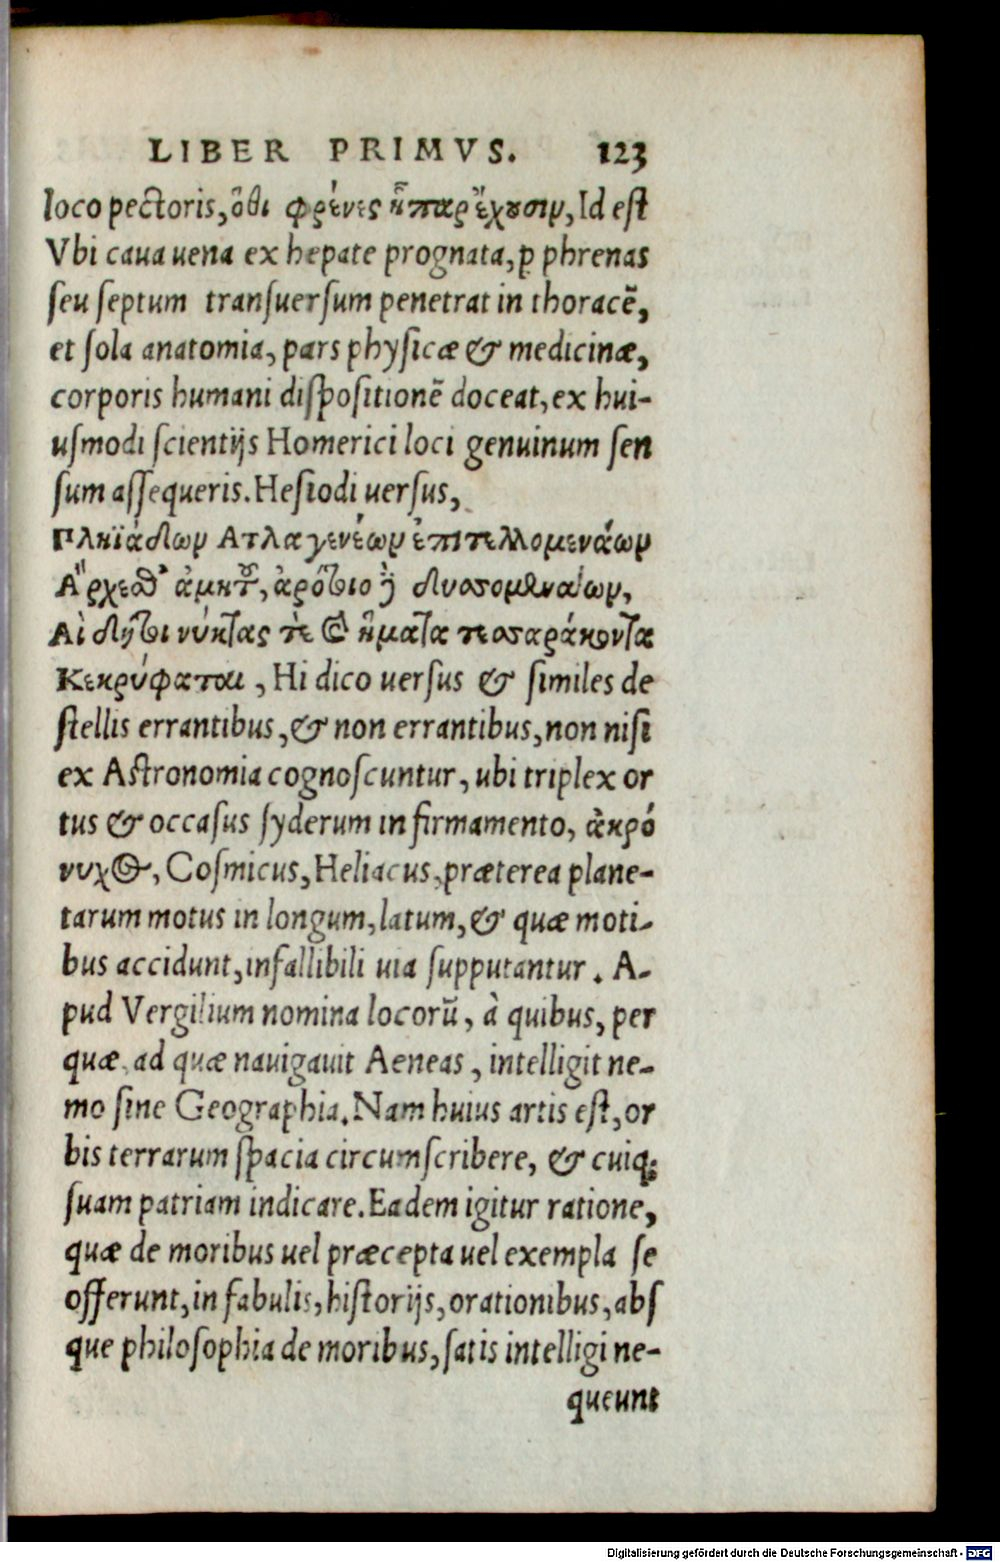 LIBER PRIMVS. 123
loco pectoris, ὅθι φρένες ἧπαρ ἔχουσιν, Id est
Vbi caua uena ex hepate prognata, ꝑ phrenas
seu septum transuersum penetrat in thoracē,
et sola anatomia, pars physicæ & medicinæ,
corporis humani dispositionē doceat, ex hui-
usmodi scientijs Homerici loci genuinum sen
sum assequeris. Hesiodi uersus,
Πληϊάδων Ατλαγενέων ἐπιτελλομενάων
Αρχεσθ' ἀμητοῦ, ἀρότοιο δὲ δυσομεναίων,
Αἱ δήτοι νύκτας τε καὶ ἤματα τεσσαράκοντα
Κεκρύφαται, Hi dico uersus & similes de
stellis errantibus, & non errantibus, non nisi
ex Astronomia cognoscuntur, ubi triplex or
tus & occasus syderum in firmamento, ἀκρό
νυχος, Cosmicus, Heliacus, præterea plane-
tarum motus in longum, latum, & quæ moti-
bus accidunt, infallibili uia supputantur. A-
pud Vergilium nomina locorū, à quibus, per
quæ, ad quæ nauigauit Aeneas, intelligit ne-
mo sine Geographia. Nam huius artis est, or
bis terrarum spacia circumscribere, & cuiq;
suam patriam indicare. Eadem igitur ratione,
quæ de moribus uel præcepta uel exempla se
offerunt, in fabulis, historijs, orationibus, abs
que philosophia de moribus, satis intelligi ne-
queunt
Digitalisierung gefördert durch die Deutsche Forschungsgemeinschaft - DFG